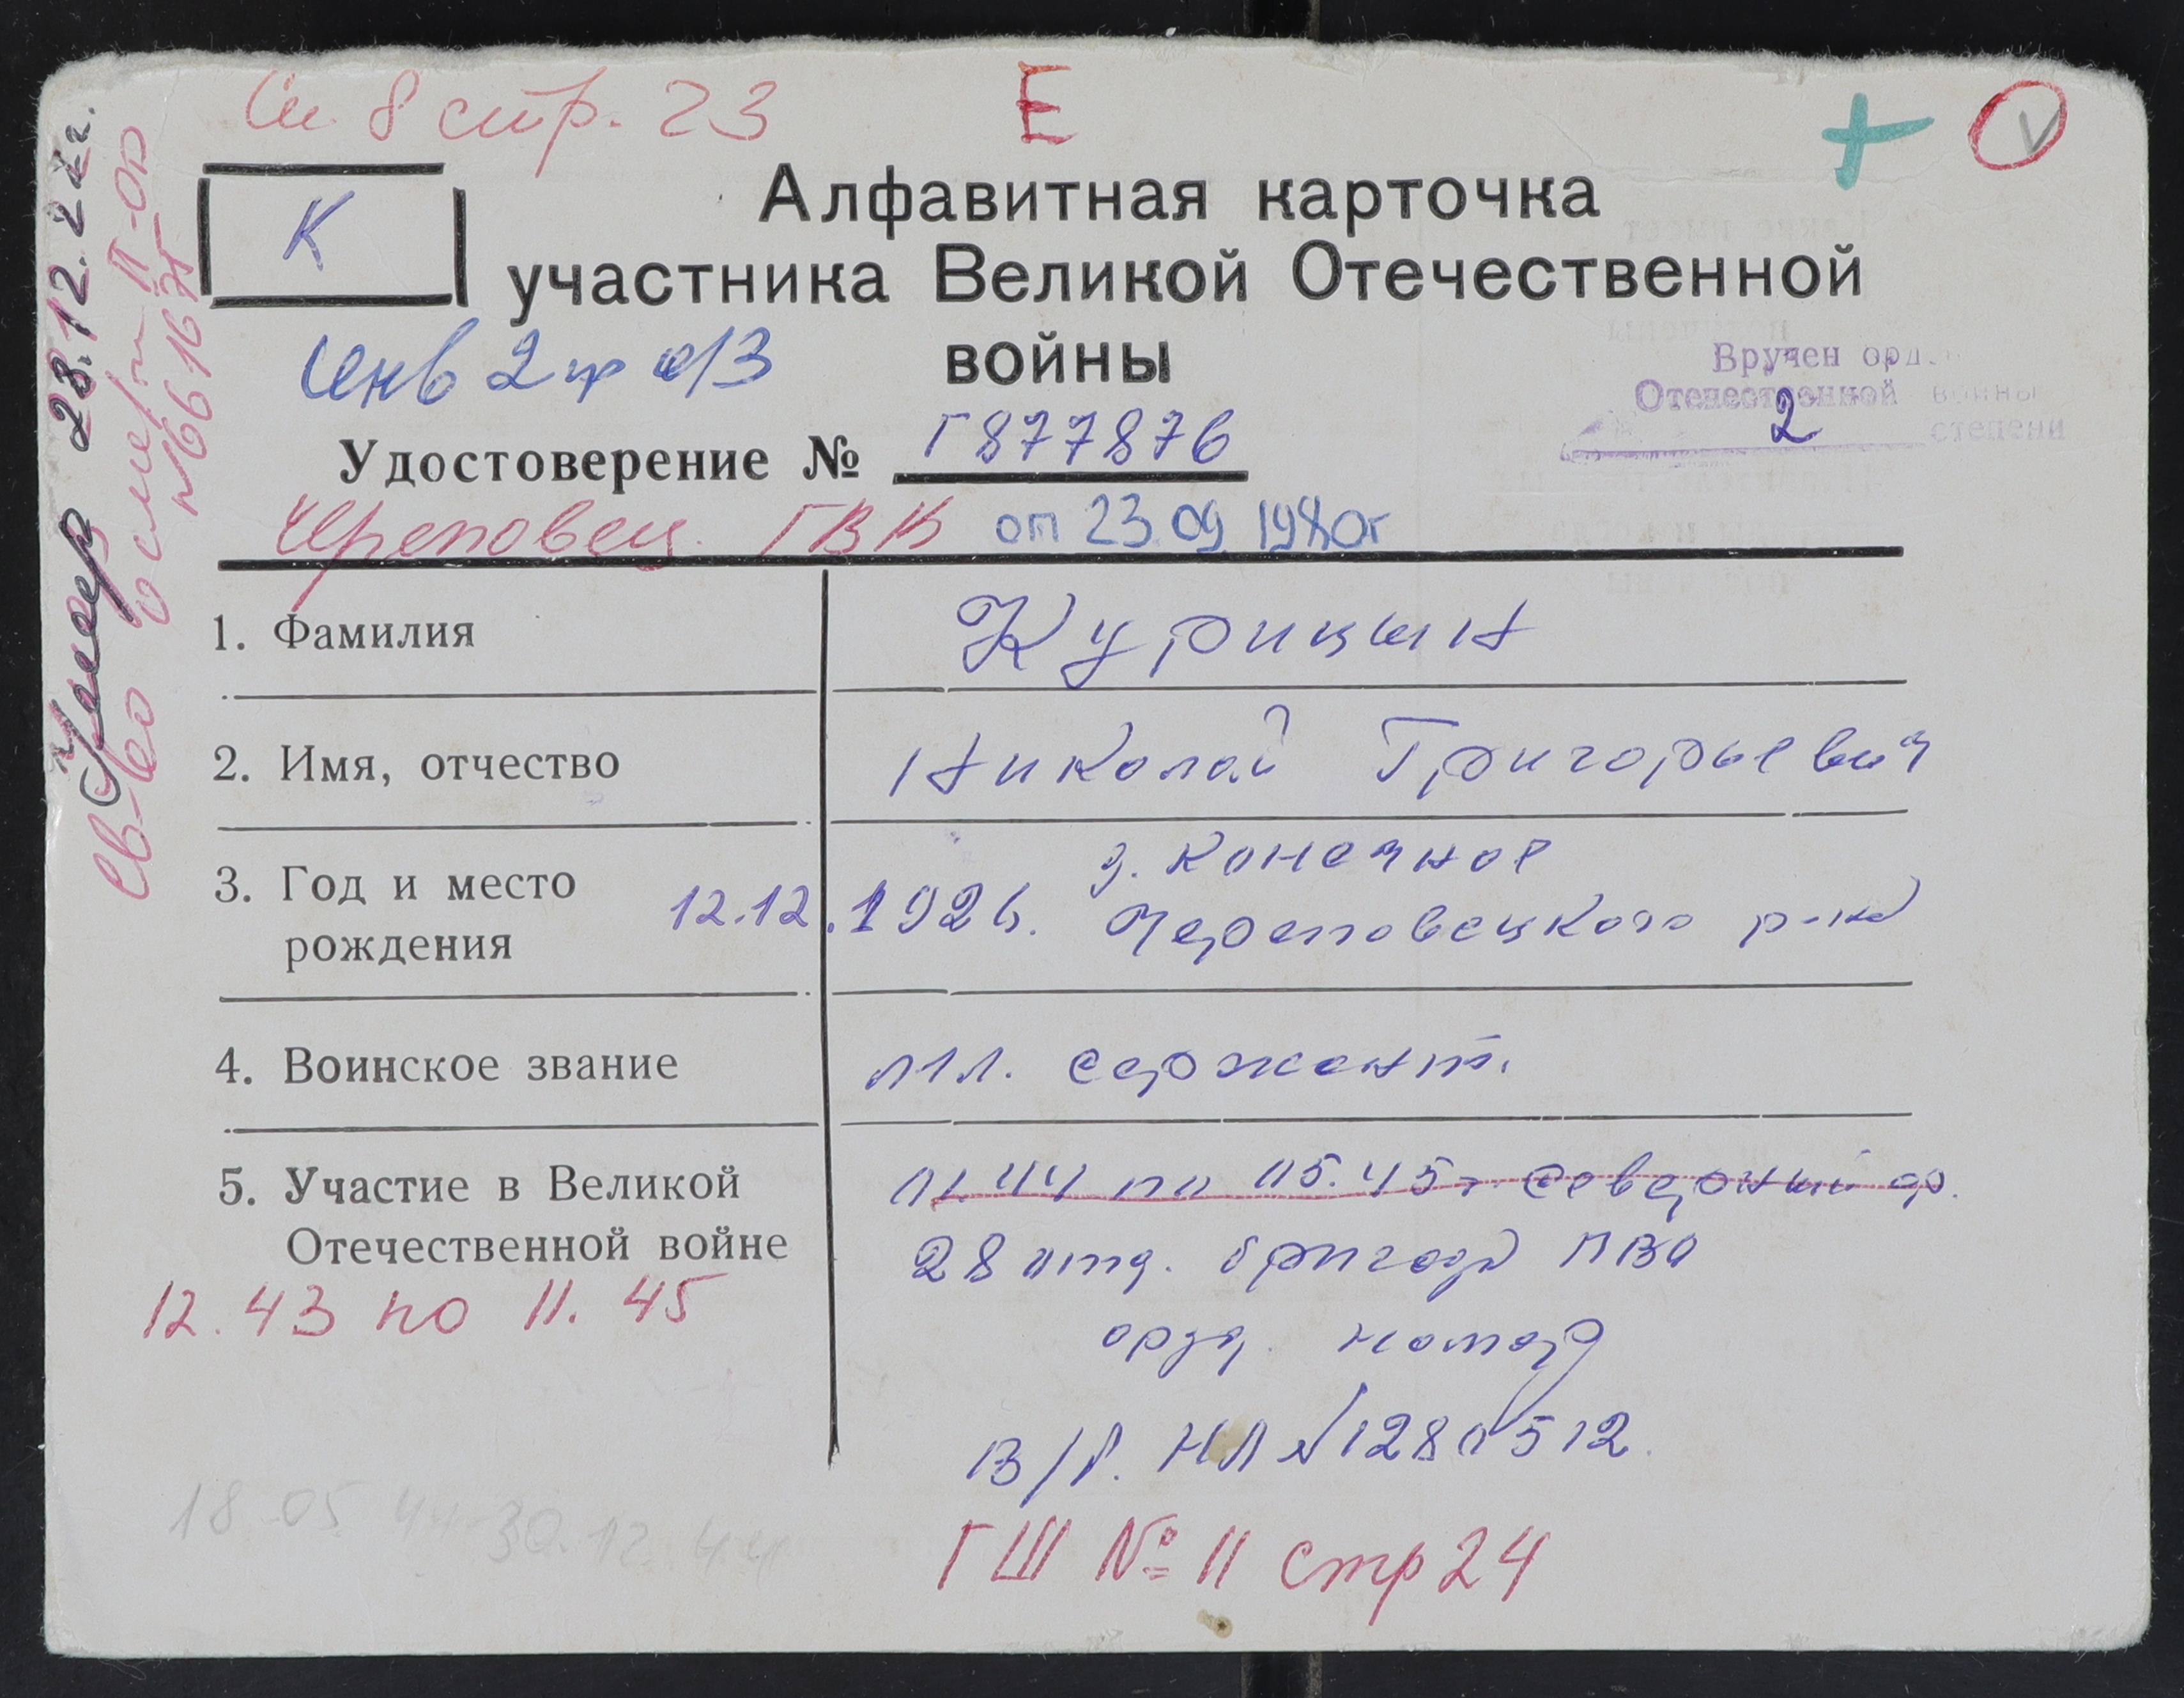 См 8 стр. 23
Е
К
Алфавитная карточка
участника Великой Отечественной
войны
инв 2 гр о/з
Вручен орд
Отечественной войны
2 степени
Удостоверение № Г877876
Череповец. ГВК от 23.09.1980г
1. Фамилия
Курицын
2. Имя, отчество
Николай Григорьевич
3. Год и место
рождения
12.12.1926. д. Конечное
Череповецкого р-на
4. Воинское звание
мл. сержант.
5. Участие в Великой
Отечественной войне
01.44 по 05.45г. Северный ф.
28 отд. бригада ПВО
12.43 по 11.45
орд. номер
В/б. НЛ № 1280512
ГШ № 11 стр 24
18.05.44-30.12.44
Умер 23.12.
Св-во о смерти II-ОД
№ 661675